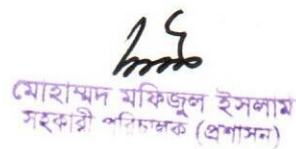 মোহাম্মদ মফিজুল ইসলাম
সহকারী পরিচালক (প্রশাসন)